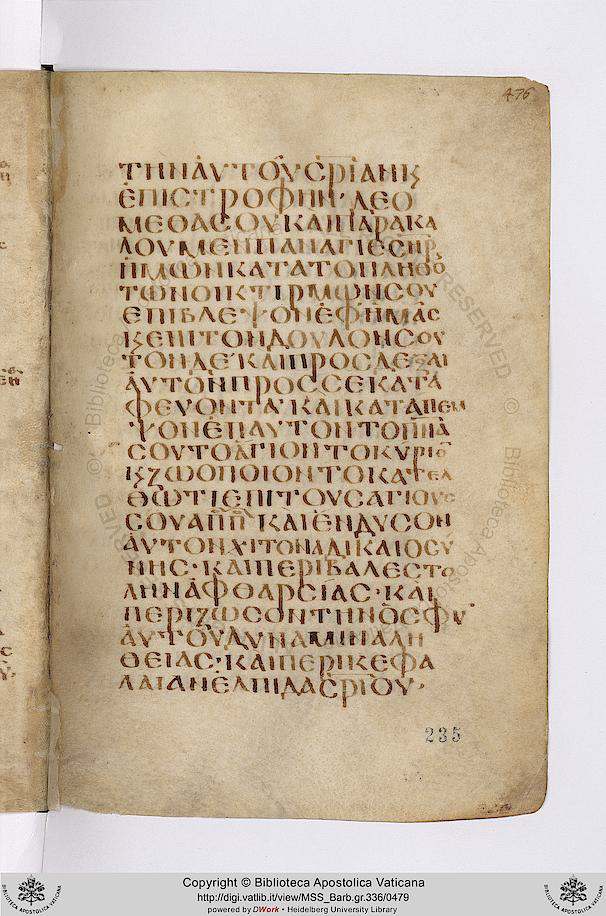 476
ΤΗΝΑΥΤΟΥ ΣΡΙΑΝ Κ
ΕΠΙΣΤΡΟΦΗΝ· ΔΕΟ
ΜΕΘΑ ΣΟΥ ΚΑΙ ΠΑΡΑΚΑ
ΛΟΥΜΕΝ ΠΑΝΑΓΙΕ ΠΡ
ΗΜΩΝ ΚΑΤΑ ΤΟ ΠΛΗΘΟ
ΤΩΝ ΟΙΚΤΙΡΜΩΝ ΣΟΥ
ΕΠΙΒΛΕΨΟΝ ΕΦ ΗΜΑΣ
Κ ΕΠΙ ΤΟΝ ΔΟΥΛΟΝ ΣΟΥ
ΤΟΝΔΕ ΚΑΙ ΠΡΟΣΔΕΞΑΙ
ΑΥΤΟΝ ΠΡΟΣ ΣΕ ΚΑΤΑ
ΦΕΥΟΝΤΑ ΚΑΙ ΚΑΤΑΠΕΜ
ΨΟΝ ΕΠ ΑΥΤΟΝ ΤΟ ΠΝΑ
ΣΟΥ ΤΟ ΑΓΙΟΝ ΤΟ ΚΥΡΙΟ
Κ ΖΩΟΠΟΙΟΝ ΤΟ ΚΑΤΕΛ
ΘΩΤΙ ΕΠΙ ΤΟΥΣ ΑΓΙΟΥΣ
ΣΟΥ ΑΠΠ ΚΑΙ ΕΝΔΥΣΟΝ
ΑΥΤΟΝ ΧΙΤΟΝΑ ΔΙΚΑΙΟΣΥ
ΝΗΣ· ΚΑΙ ΠΕΡΙΒΑΛΕ ΣΤΟ
ΛΗΝ ΑΦΘΑΡΣΙΑΣ· ΚΑΙ
ΠΕΡΙΖΩΣΟΝ ΤΗΝ ΟΣΦΥ
ΑΥΤΟΥ ΔΥΝΑΜΙΝ ΑΛΗ
ΘΕΙΑΣ· ΚΑΙ ΠΕΡΙΚΕΦΑ
ΛΑΙΑΝ ΕΛΠΙΔΑ ΣΡΙΟΥ·
235
Copyright © Biblioteca Apostolica Vaticana
http://digi.vatlib.it/view/MSS_Barb.gr.336/0479
powered by DWork • Heidelberg University Library